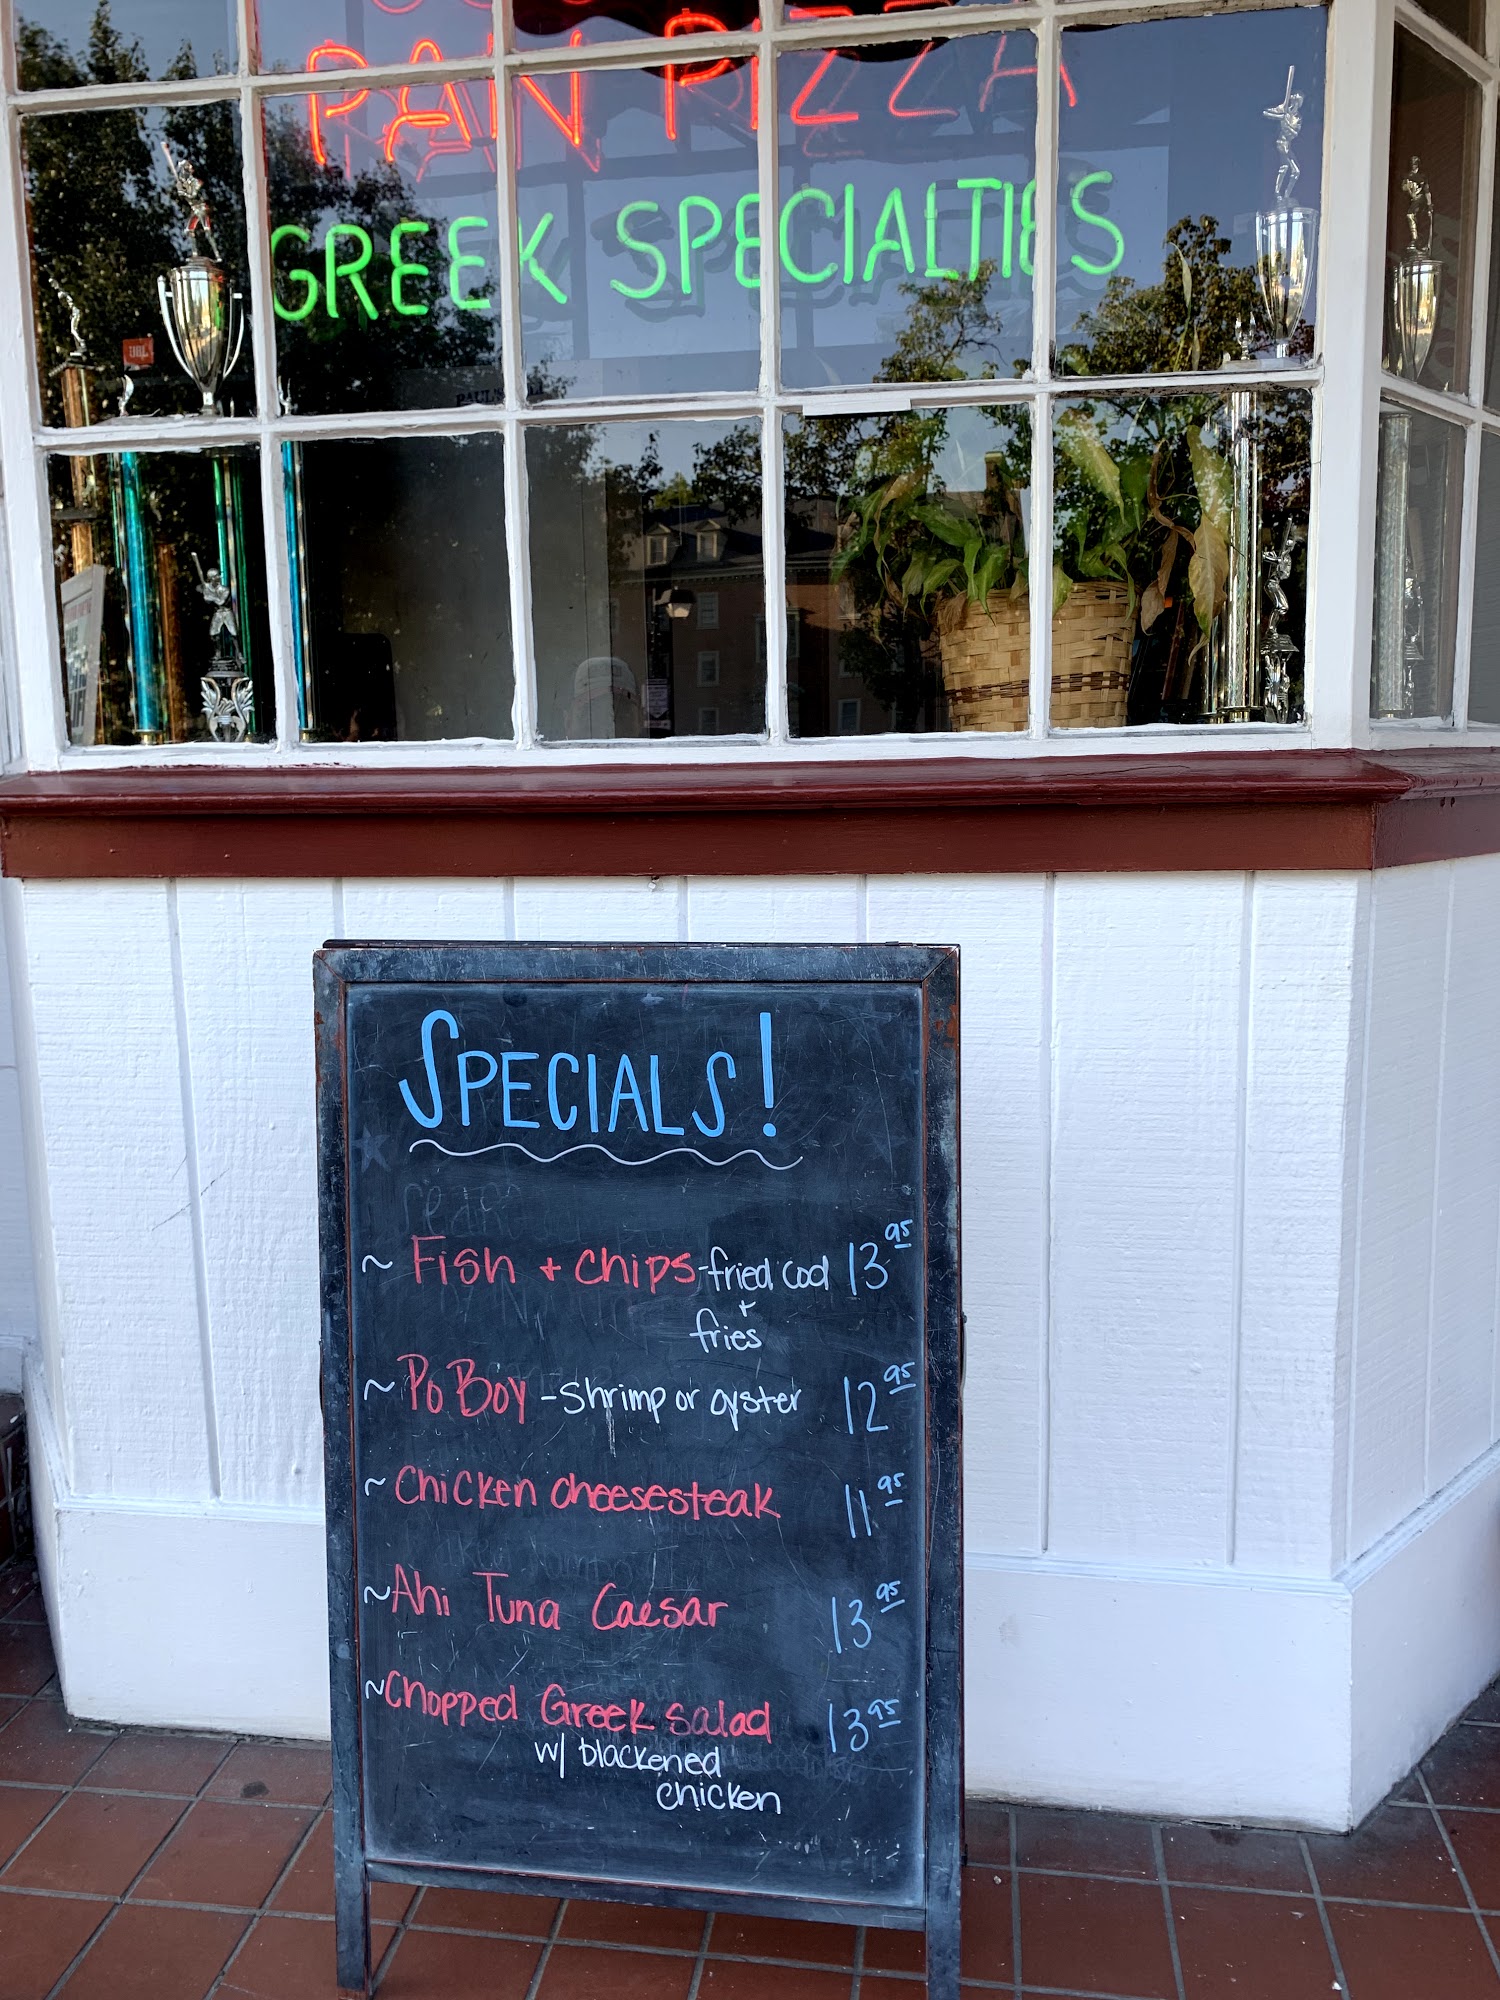 PAN PIZZA
GREEK SPECIALTIES
JBL
SPECIALS!
~ Fish + chips - fried cod 13 95
+
fries
~ Po Boy - shrimp or oyster 12 95
~ Chicken cheesesteak 11 95
~ Ahi Tuna Caesar 13 95
~ Chopped Greek salad 13 95
w/ blackened
chicken